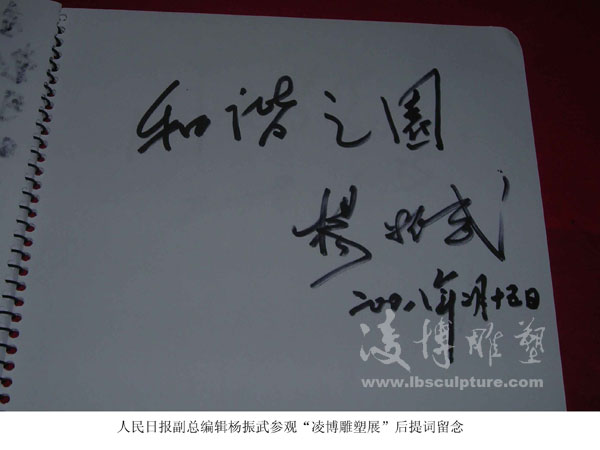 和谐之園
楊振武
二〇〇八年2月十五日
凌博雕塑
www.lbsculpture.com
人民日报副总编辑杨振武参观“凌博雕塑展”后提词留念